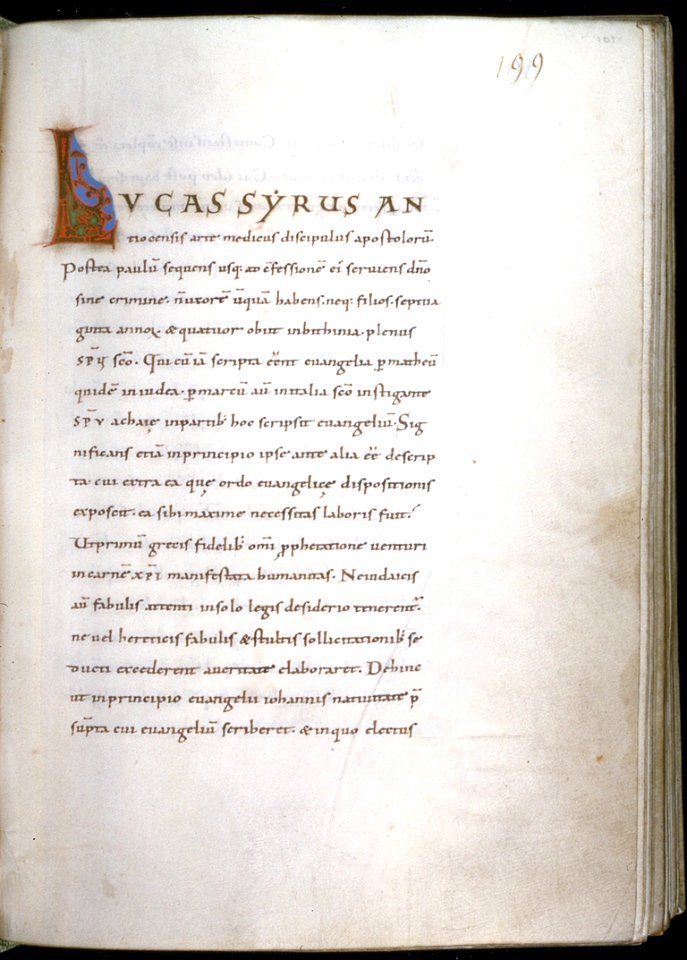 199
LVCAS SYRUS AN
tiocensis arte medicus discipulus apostolorū.
Postea paulū sequens usq; ad cōfessionē eiꝰ seruiens dn̄o
sine crimine. n̄ uxorē ūquā habens. neq; filios. septua
ginta annoꝝ. & quatuor obiit inbithinia. plenus
sp̄u sc̄o. Qui cū iā scripta eēnt euangelia ꝑ matheū
quidē in iudea. ꝑ marcū aū in italia sc̄o instigante
sp̄u achaię inpartibꝰ hoc scripsit euangeliū. Sig
nificans etiā inprincipio ipse ante alia eē descrip
ta. cui extra ea quę ordo euangelicę dispositionis
exposcit. ea sibi maxime necessitas laboris fuit.
Ut primū grecis fidelibꝰ omī ꝓphetatione uenturi
in carnē xp̄i manifestata humanitas. Ne iudaicis
aū fabulis attenti in solo legis desiderio tenerent᷑.
ne uel hereticis fabulis & stultis sollicitationibꝰ se
ducti excederent a ueritate elaboraret. Dehinc
ut inprincipio euangelii iohannis natiuitate p̄
sūpta cui euangeliū scriberet. & in quo electus